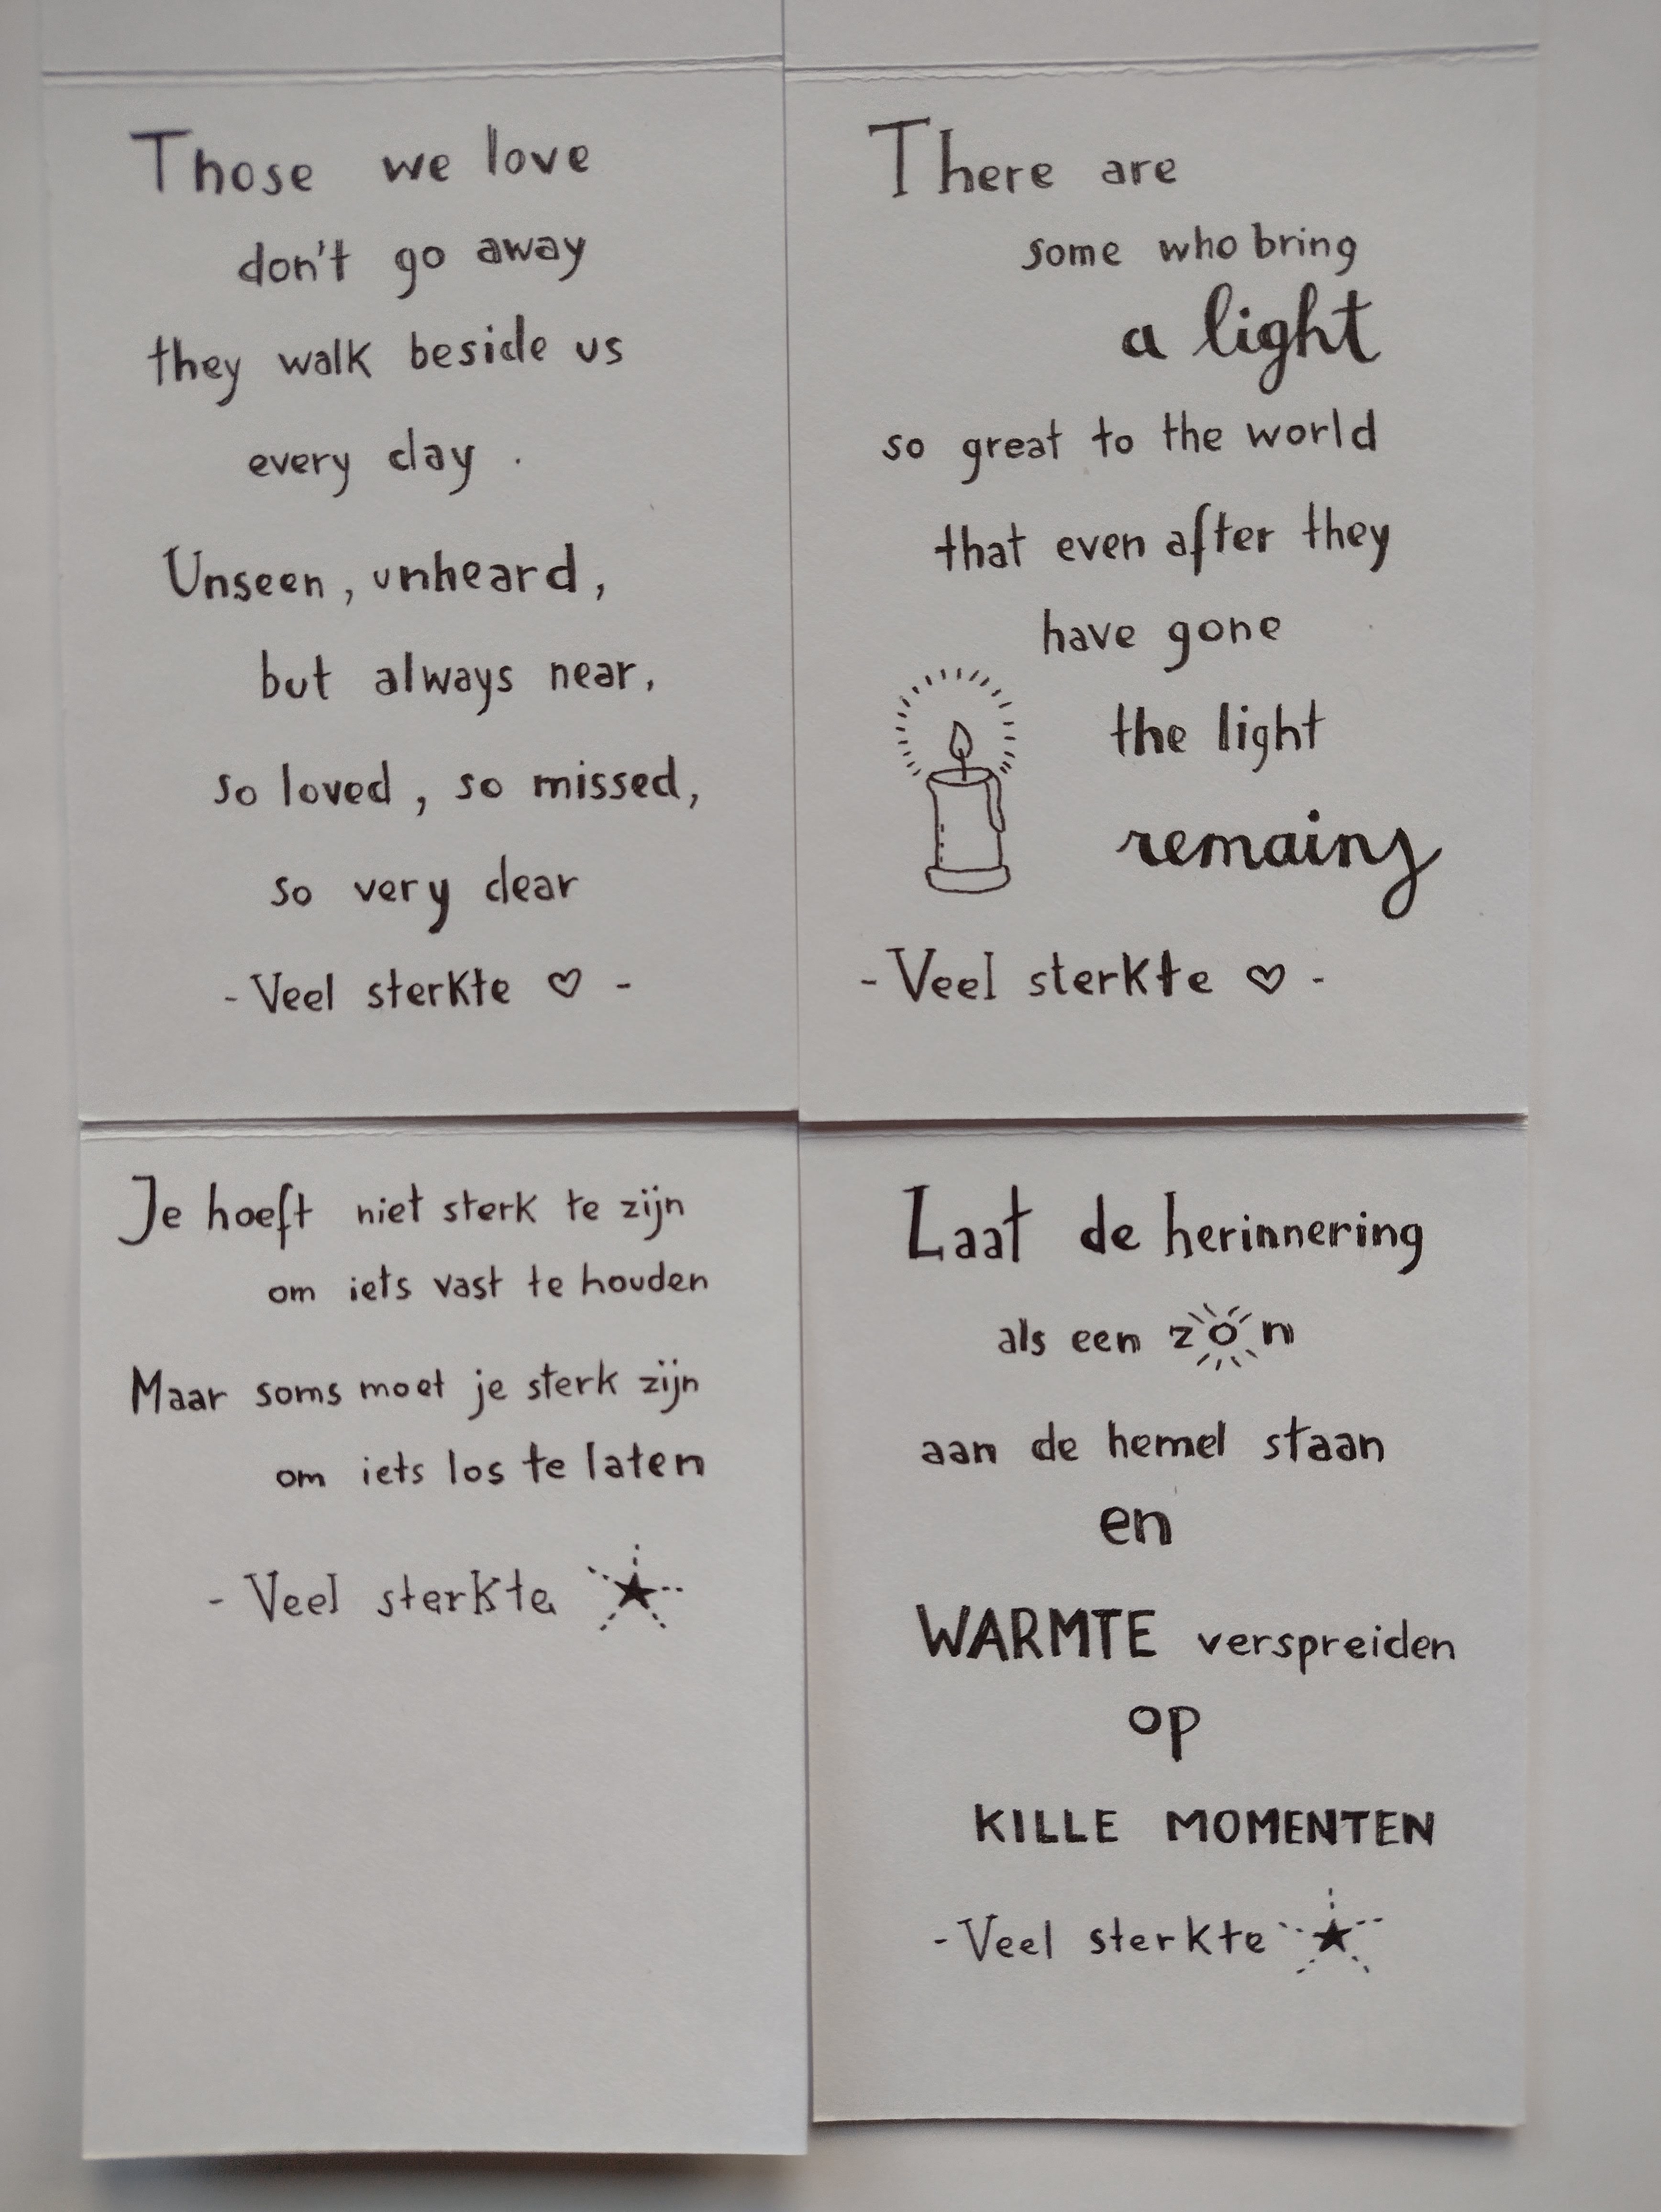 Those we love
don't go away
they walk beside us
every day .
Unseen, unheard,
but always near,
so loved, so missed,
so very dear
- Veel sterkte ♡ -
There are
some who bring
a light
so great to the world
that even after they
have gone
the light
remains
- Veel sterkte ♡ -
Je hoeft niet sterk te zijn
om iets vast te houden
Maar soms moet je sterk zijn
om iets los te laten
- Veel sterkte ★
Laat de herinnering
als een zon
aan de hemel staan
en
WARMTE verspreiden
op
KILLE MOMENTEN
- Veel sterkte ★